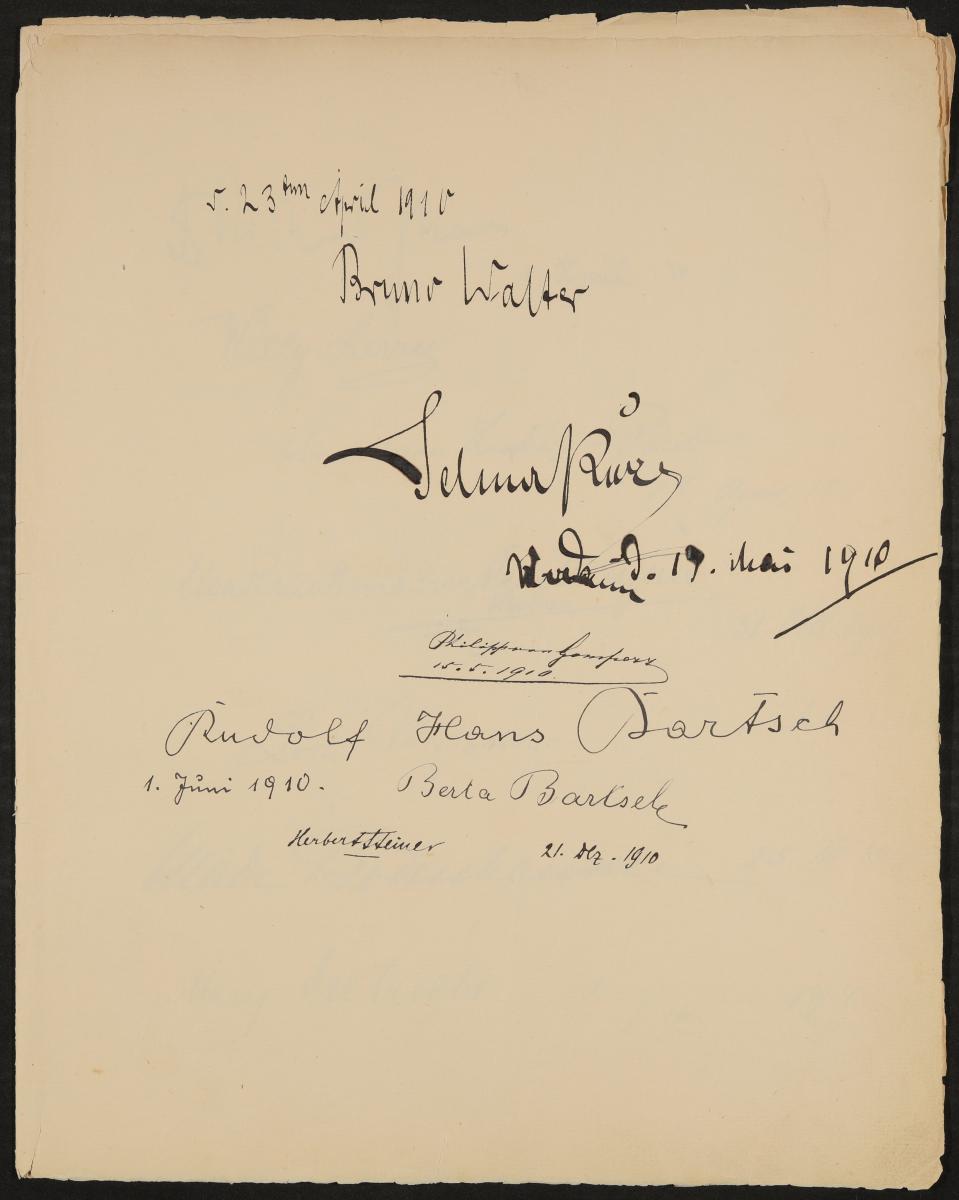 d. 23ten April 1910
Bruno Walter
Selma Kurz
d. 19. Mai 1910
Philipp von Gomperz
15.5.1910.
Rudolf Hans Bartsch
1. Juni 1910. Berta Bartsch
Herbert Steiner 21. Dez. 1910